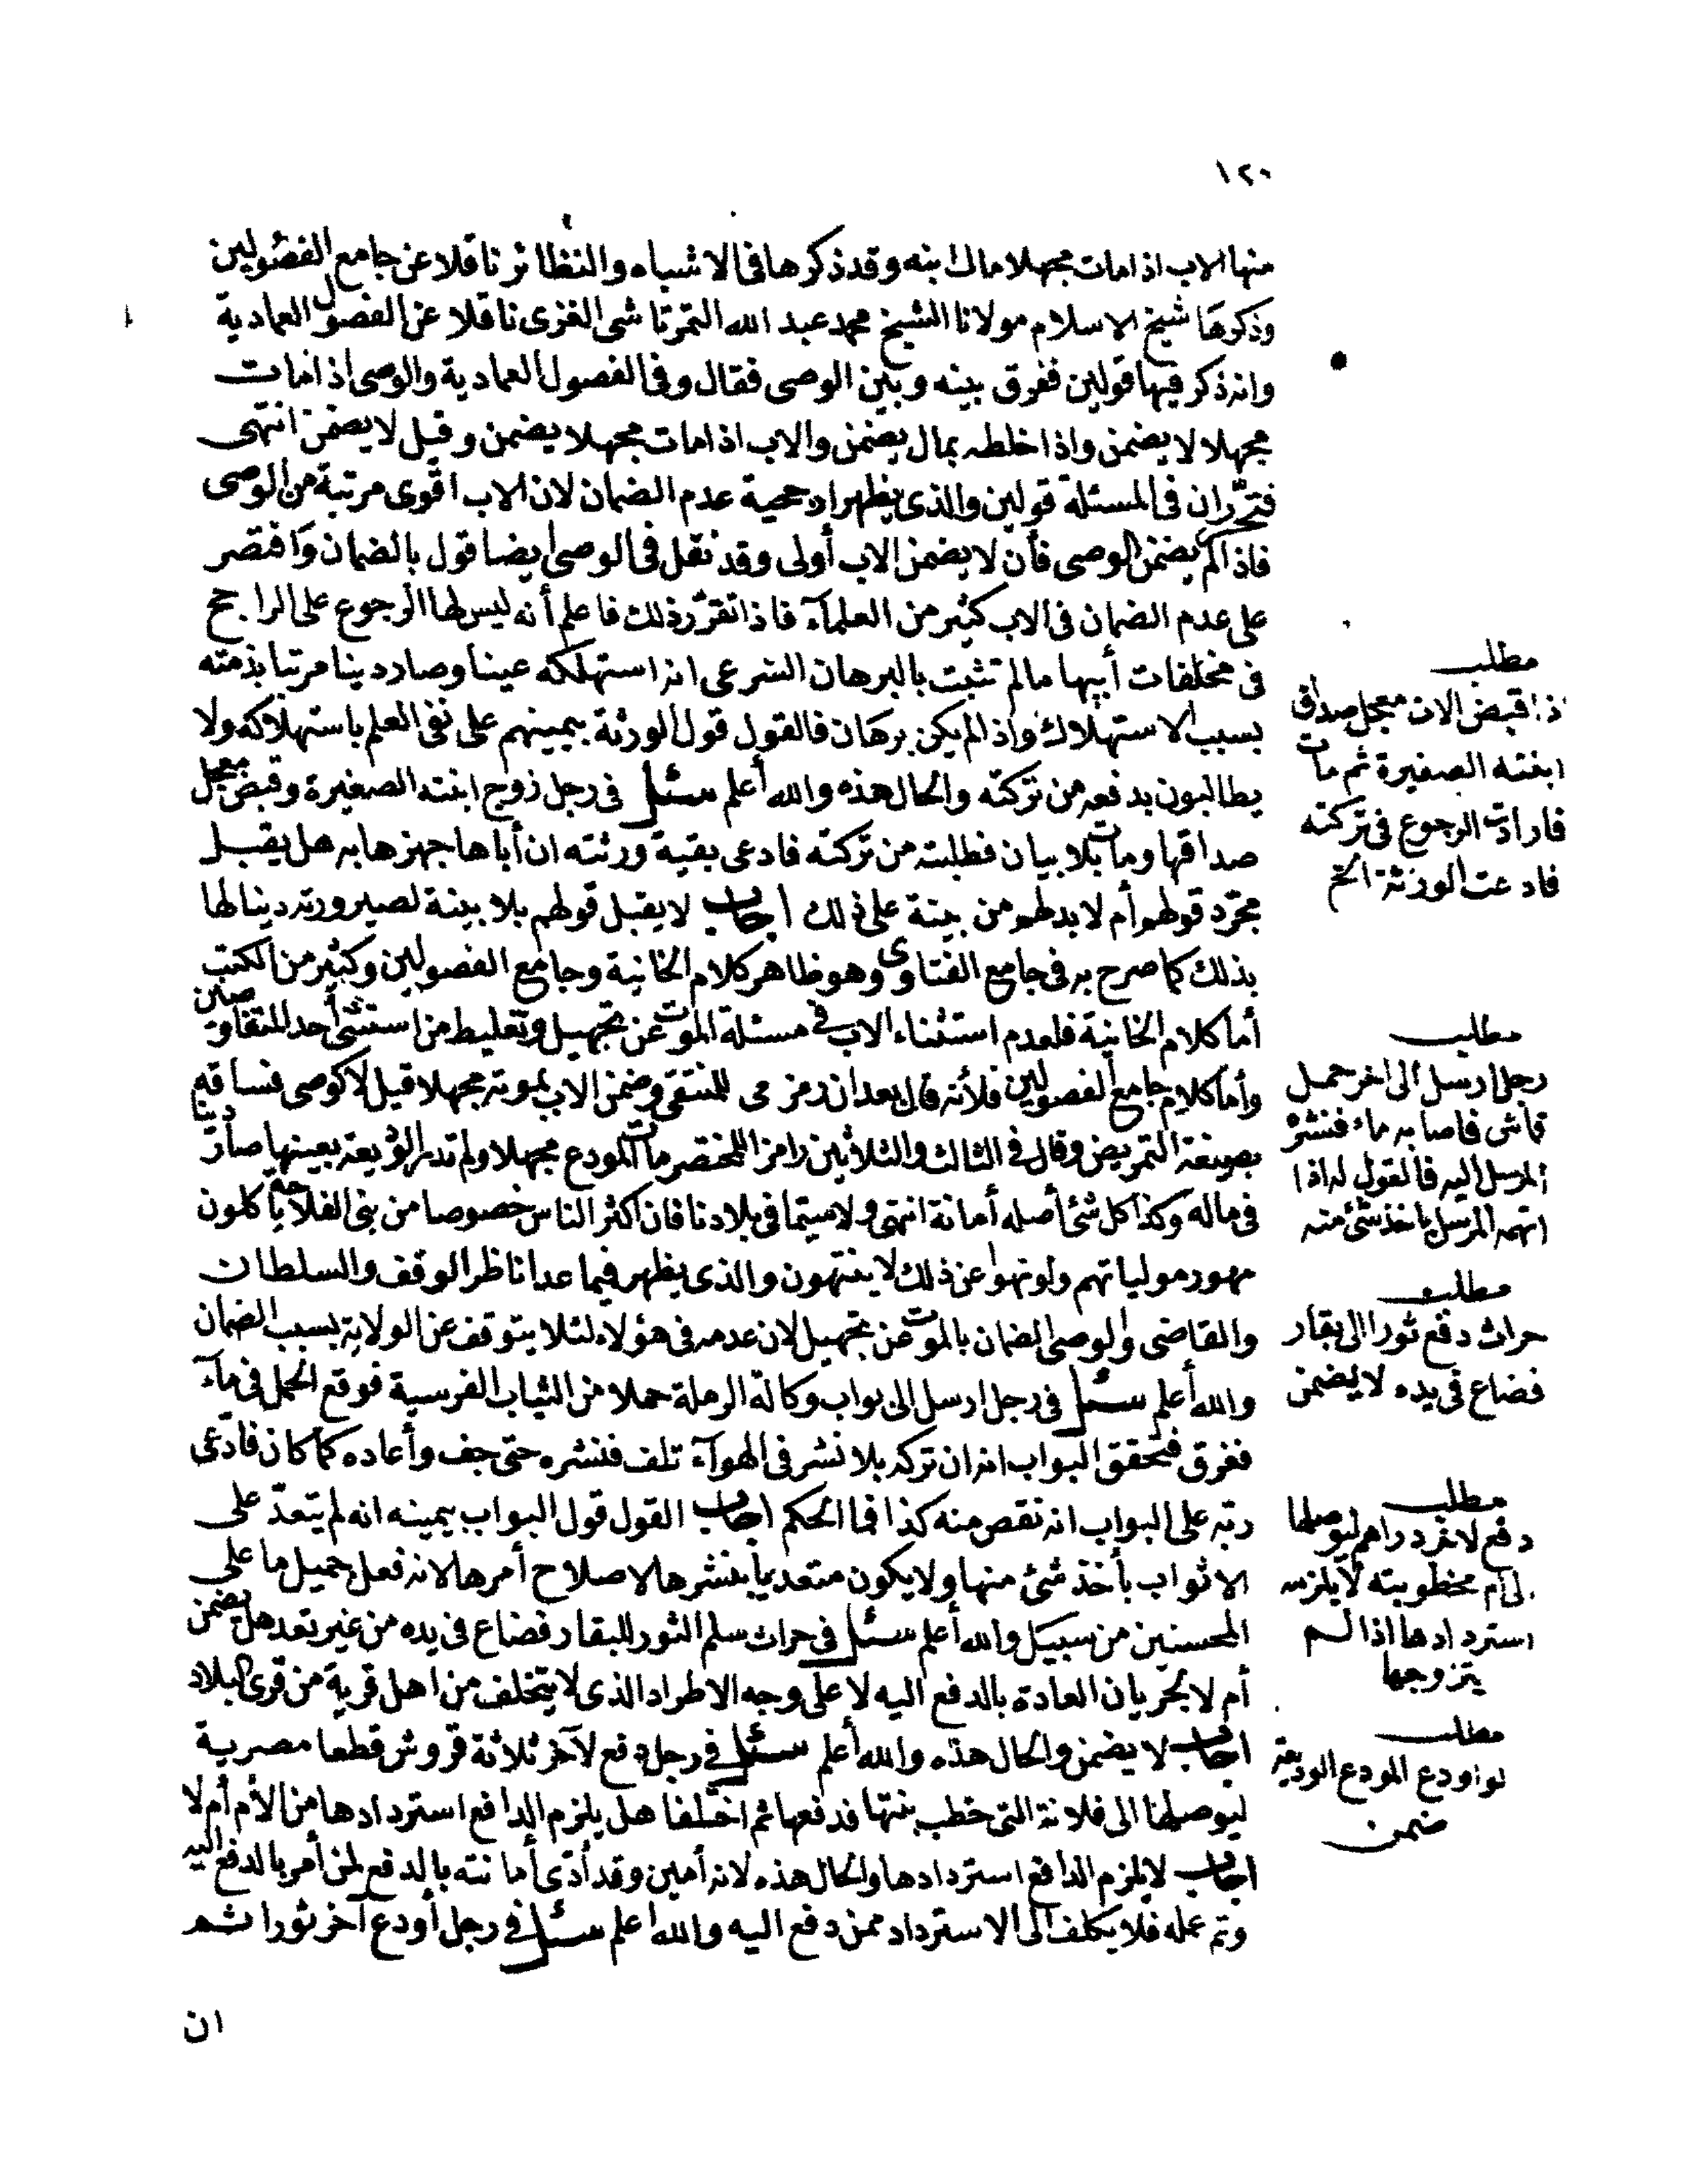 ١٢٠
منها الاب اذا مات مجهلا مال ابنه وقد ذكرها في الاشباه والنظائر ناقلا عن جامع الفصولين
وذكرها شيخ الاسلام مولانا الشيخ محمد عبد الله التمرتاشي الغزى ناقلا عن الفصول العمادية
وانه ذكر فيها قولين ففرق بينه وبين الوصى فقال وفى الفصول العمادية والوصى اذا مات
مجهلا لا يضمن واذا خلطه بمال يضمن والاب اذا مات مجهلا يضمن وقيل لا يضمن انتهى
فتحرّر ان في المسئلة قولين والذى يظهر ارجحية عدم الضمان لان الاب اقوى مرتبة من الوصى
فاذا لم يضمن الوصى فأن لا يضمن الاب أولى وقد نقل في الوصى ايضا قول بالضمان واقتصر
على عدم الضمان فى الاب كثير من العلمآء فاذا تقرّر ذلك فاعلم أنه ليس لها الرجوع على الراجح
فى مخلفات أبيها مالم تثبت بالبرهان الشرعى انه استهلكه عينا وصار دينا مرتبا بذمته
بسبب الاستهلاك واذا لم يكن برهان فالقول قول الورثة بيمينهم على نفى العلم باستهلاكه ولا
يطالبون بدفعه من تركته والحال هذه والله أعلم سئل فى رجل زوج ابنته الصغيرة وقبض معجل
صداقها ومات بلا بيان فطلبته من تركته فادعى بقية ورثته ان أباها جهزها به هل يقبل
مجرّد قولهم أم لا بد لهم من بينة على ذلك اجاب لا يقبل قولهم بلا بينة لصيرورته دينا لها
بذلك كما صرح به فى جامع الفتاوى وهو ظاهر كلام الخانية وجامع الفصولين وكثير من الكتب
أما كلام الخانية فلعدم استثناء الاب في مسئلة الموت عن تجهيل وتغليط من استثنى أحد المتفاوضين
وأما كلام جامع الفصولين فلأنه قال بعد ان رمز مى للمنتقى وضمن الاب بموته مجهلا قيل لا كوصى فساقه
بصيغة التمريض وقال في الثالث والثلاثين رامزا للمختصر مات المودع مجهلا ولم تدر الوديعة بعينها صارت دينا
فى ماله وكذا كل شئ أصله أمانة انتهى ولا سيّما فى بلادنا فان اكثر الناس خصوصا من بنى الفلاحة يأكلون
مهور مولياتهم ولو نهوا عن ذلك لا ينتهون والذى يظهر فيما عدا ناظر الوقف والسلطان
والقاضى والوصى الضمان بالموت عن تجهيل لان عدمه فى هؤلاء لئلا يتوقف عن الولاية بسبب الضمان
والله أعلم سئل فى رجل ارسل الى بواب وكالة الرملة حملا من الثياب الفرسية فوقع الحمل فى مآء
فغرق فتحقق البواب انه ان تركه بلا نشر فى الهوآء تلف فنشره حتى جف وأعاده كما كان فادّعى
ربّه على البواب انه نقص منه كذا فما الحكم اجاب القول قول البواب بيمينه انه لم يتعدّ على
الاثواب بأخذ شئ منها ولا يكون متعديا بنشرها لاصلاح أمرها لانه فعل جميل ما على
المحسنين من سبيل والله أعلم سئل فى حراث سلم الثور للبقار فضاع فى يده من غير تعد هل يضمن
أم لا لجريان العادة بالدفع اليه لا على وجه الاطراد الذى لا يتخلف من اهل قرية من قرى البلاد
اجاب لا يضمن والحال هذه والله أعلم سئل فى رجل دفع لآخر ثلاثة قروش قطعا مصرية
ليوصلها الى فلانة التى خطب بنتها فدفعها ثم اختلفا هل يلزم الدافع استردادها من الأم أم لا
اجاب لا يلزم الدافع استردادها والحال هذه لانه أمين وقد أدّى أمانته بالدفع لمن أمر بالدفع اليه
وتم عمله فلا يكلف الى الاسترداد ممن دفع اليه والله اعلم سئل فى رجل أودع آخر ثورا ثم
ان
مطلب
اذا قبض الاب معجل صداق
ابنته الصغيرة ثم مات
فارادت الرجوع فى تركته
فادعت الورثة الخ
مطلب
رجل ارسل الى اخر حمل
قماش فاصابه ماء فنشره
المرسل اليه فالقول له اذا
اتهمه المرسل باخذ شئ منه
مطلب
حراث دفع ثورا الى بقار
فضاع فى يده لا يضمن
مطلب
دفع لاخر دراهم ليوصلها
الى ام مخطوبته لا يلزمه
استردادها اذا لم
يتزوجها
مطلب
لو اودع المودع الوديعة
ضمن